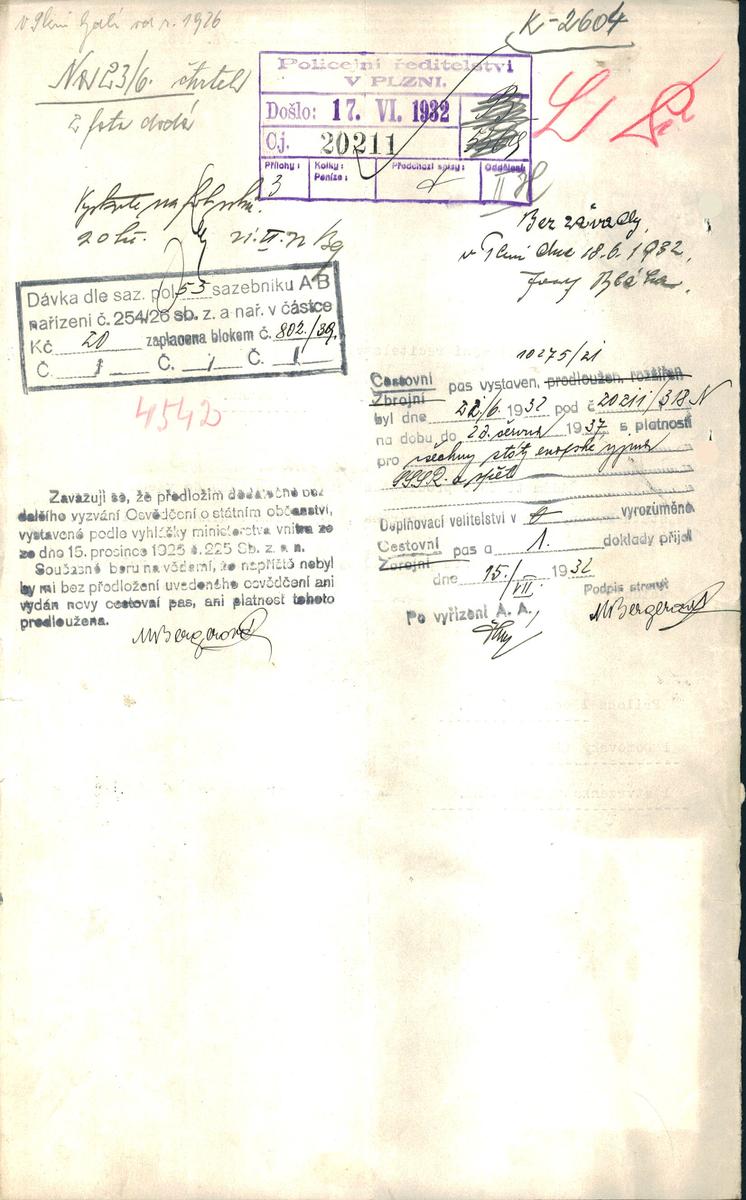 v Plzni
od r. 1926
K-2604
Na 23/6. čtvrtek
2 fota dodá
Policejní ředitelství
V PLZNI.
Došlo: 17. VI. 1932
Čj. 20211
Přílohy: 3
Kolky:
Peníze:
Předchozí spisy:
Oddělení: II
20 Kč.
Bez závady,
v Plzni dne 18.6.1932.
Josef Bláha
Dávka dle saz. pol. 53 sazebníku A B
nařízení č. 254/26 sb. z. a nař. v částce
Kč 20 zaplacena blokem č. 802./39.
Č. 1 Č. 1 Č. 1
4542
10275/21
Cestovní pas vystaven, prodloužen, rozšířen
Zbrojní
byl dne 22/6. 1932 pod č 20211/318 N
na dobu do 22. června 1937 s platností
pro všechny státy evropské vyjma
SSSR. a zpět
Doplňovací velitelství v vyrozuměno
Cestovní pas a 1. doklady přijal
Zbrojní
dne 15./VII. 1932
Podpis strany:
Po vyřízení A. A.
MBergerová
Zavazuji se, že předložím dodatečně bez
dalšího vyzvání Osvědčení o státním občanství,
vystavené podle vyhlášky ministerstva vnitra ze
ze dne 15. prosince 1925 č. 225 Sb. z. a n.
Současně beru na vědomí, že napříště nebyl
by mi bez předložení uvedeného osvědčení ani
vydán nový cestovní pas, ani platnost tohoto
prodloužena.
MBergerová